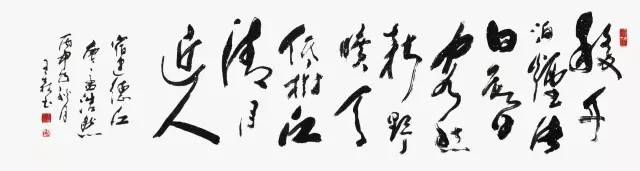 移舟
泊煙渚
日暮
客愁
新野
曠天
低树江
清月
近人
宿建德江
唐孟浩然
丙申秋月
王书